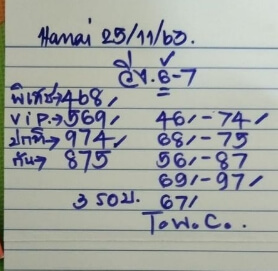 Hanoi 25/11/63.
วิ่ง.6-7
พิเศษ→468/
Vip.→569/ 46/-74/
ปกติ→974/ 68/-75
กัน→875 56/-87
69/-97/
3 รอบ. 67/
T.W.C..